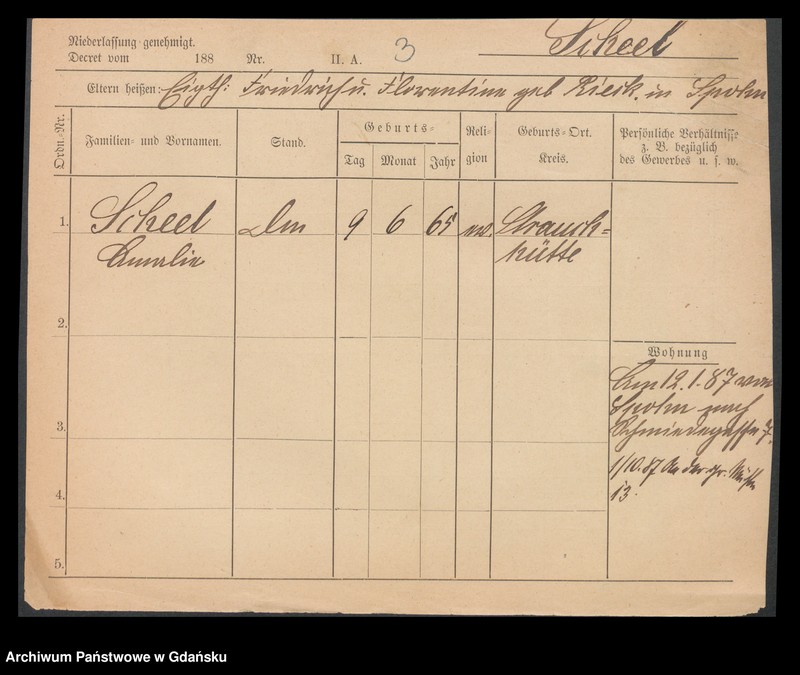 Niederlassung genehmigt.
Decret vom 188 Nr. II. A. 3 Scheel
Eltern heißen: Eigth: Friedrich u. Florentine geb in Spohn
Ordn.-Nr. Familien- und Vornamen. Stand. Geburts- Tag Monat Jahr Religion Geburts-Ort. Kreis. Persönliche Verhältnisse z. B. bezüglich des Gewerbes u. s. w.
1. Scheel 9 6 65 ev. Strauch-
Amalie hütte
2.
Wohnung
Am 12.1.87 von
Spohn nach
3. Schmiedegasse 7.
1/10.87 An der gr. Mühle
4. 13.
5.
Archiwum Państwowe w Gdańsku